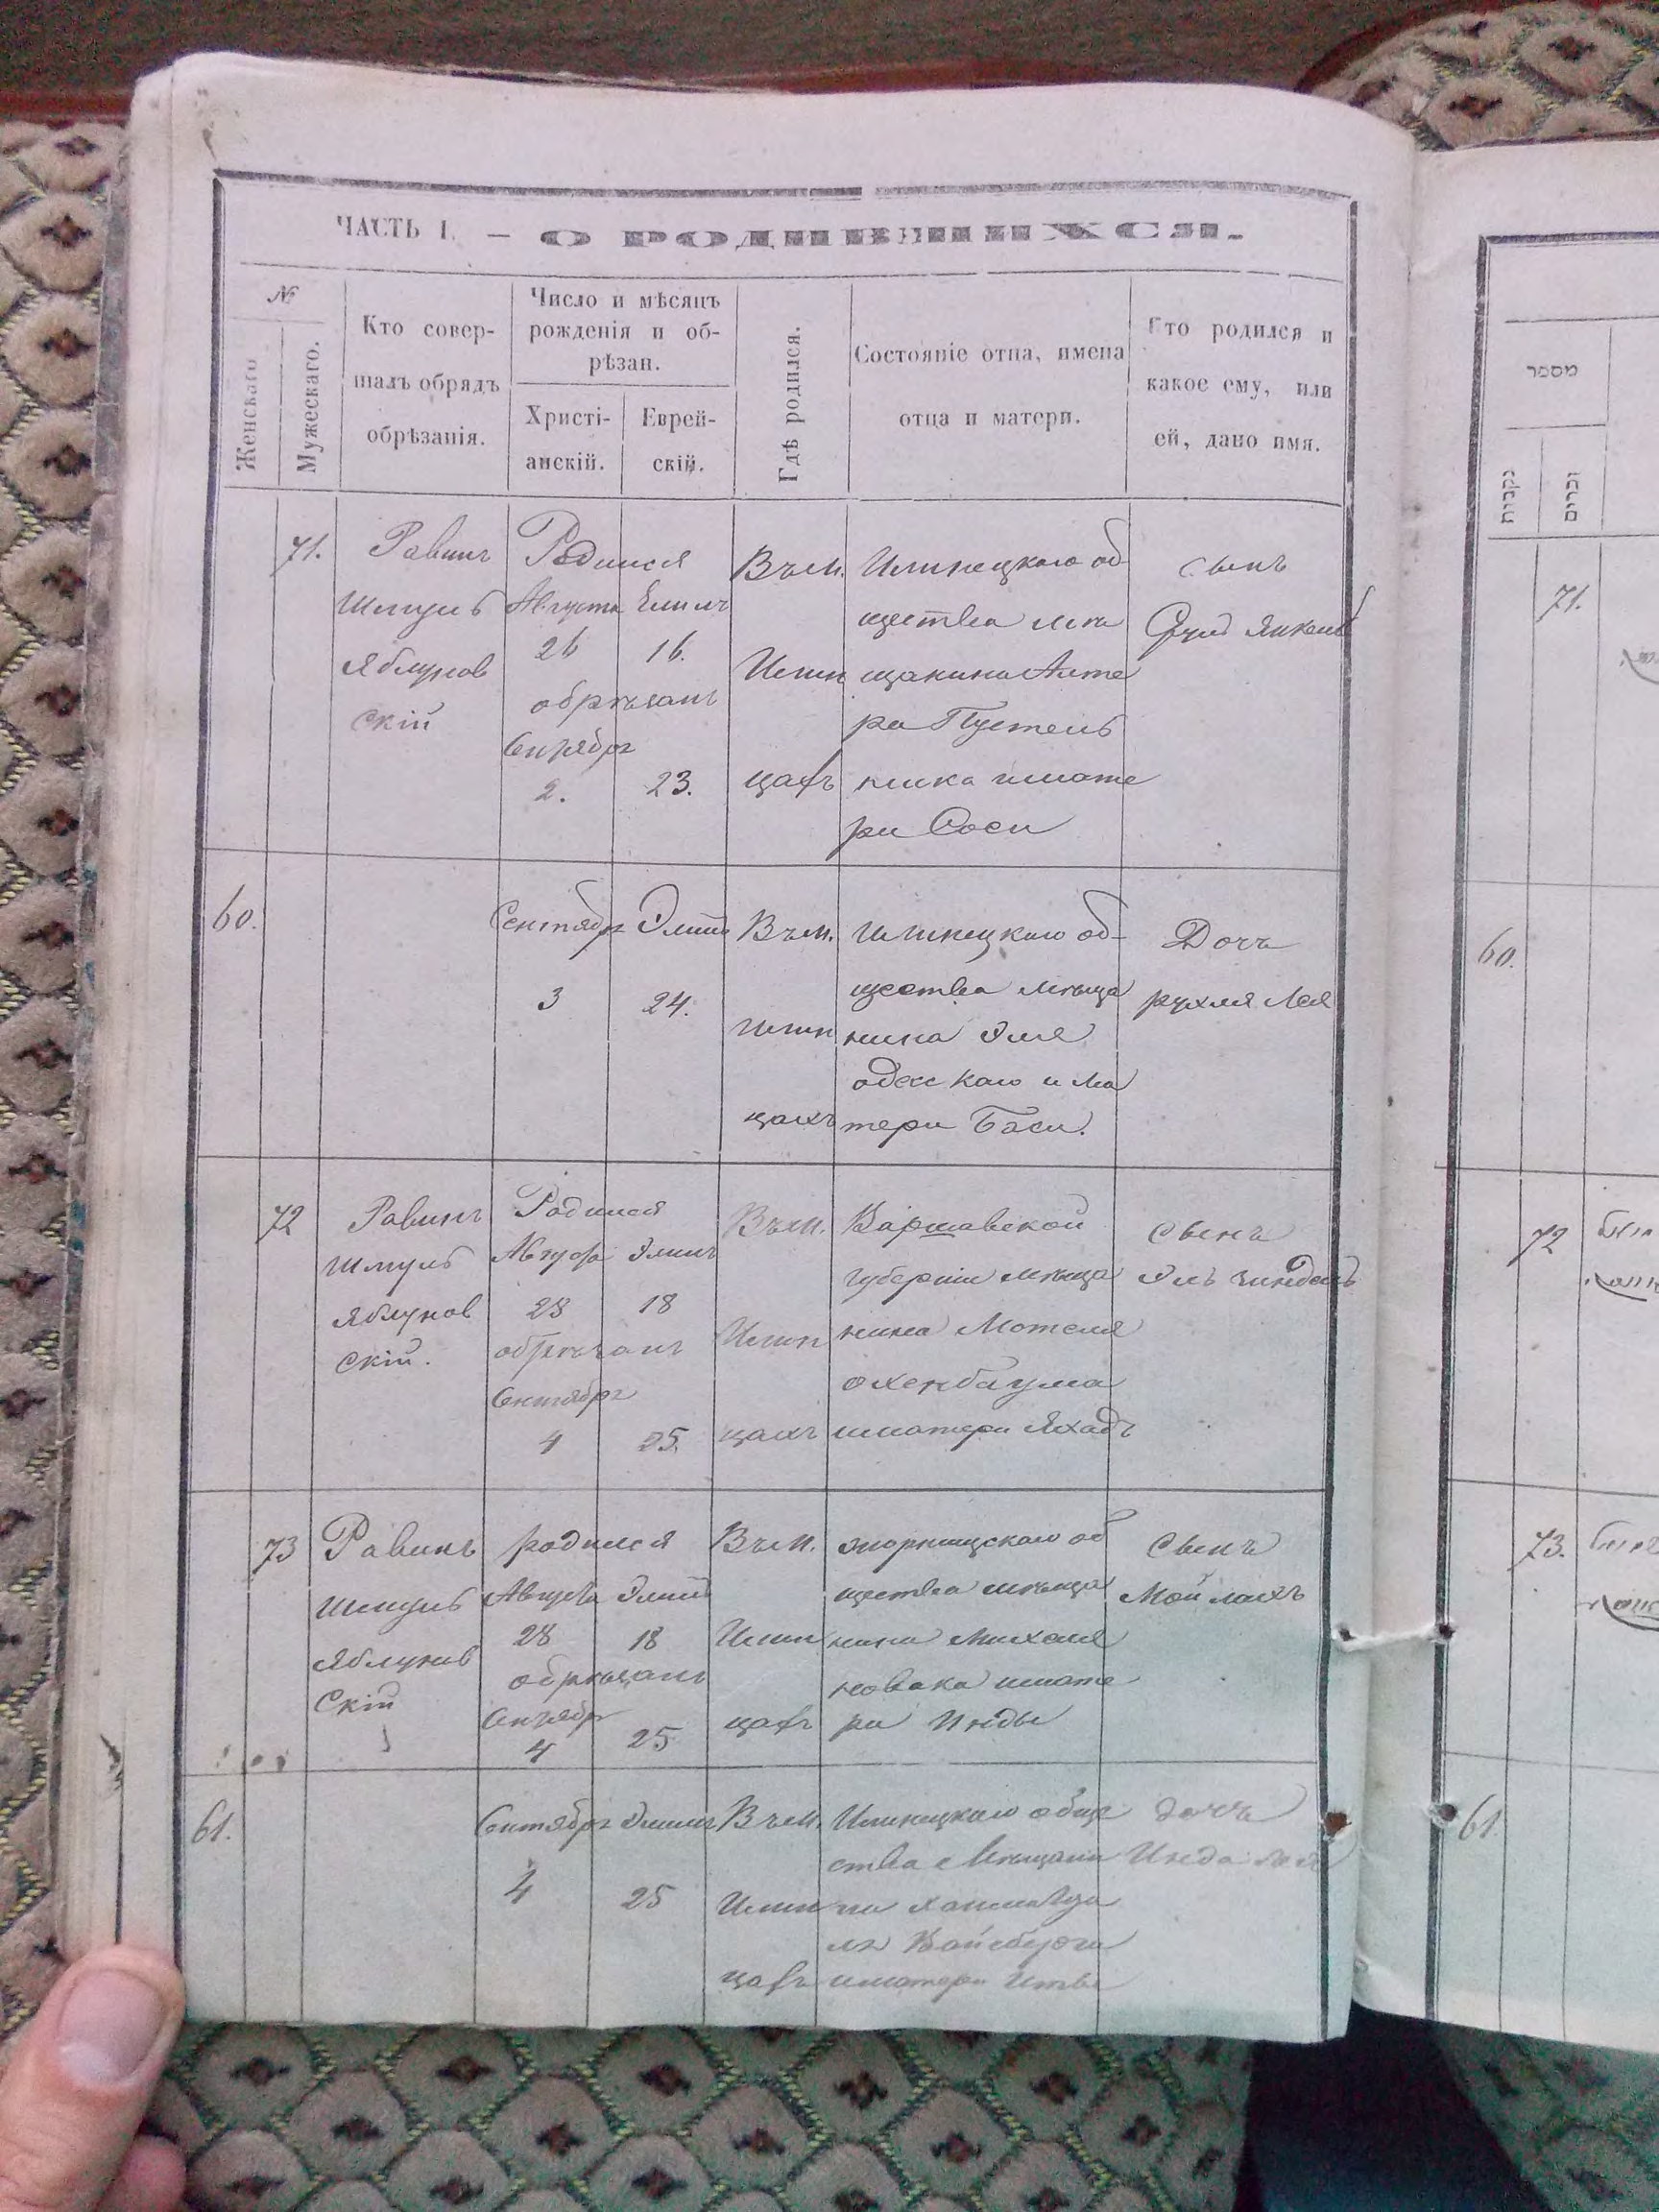 ЧАСТЬ I. — О РОДИВШИХСЯ.
№
Женскаго
Мужескаго.
Кто совер-
шалъ обрядъ
обрѣзанія.
Число и мѣсяцъ
рожденія и об-
рѣзан.
Христі-
анскій.
Еврей-
скій.
Гдѣ родился.
Состояніе отца, имена
отца и матери.
Кто родился и
какое ему, или
ей, дано имя.
71.
Равинъ
Шмуль
Яблунов
скій
Родился
Августа
26
16.
обрѣзанъ
Сентябрь
2.
23.
Въ м.
Илин
цахъ
Илинецкаго об
щества мѣ
щанина Алте
ра Пустель
ника и мате
ри Соси
сынъ
Сруль Янкель
60.
Сентябр
3
Элюль
24.
Въ м.
Илин
цахъ
Илинецкаго об-
щества мѣща
нина Эля
Одесскаго и ма
тери Баси.
Дочь
Рухля Лея
72
Равинъ
Шмуль
Яблунов
скій.
Родился
Августа
28
18
обрѣзанъ
Сентября
4
25.
Въ м.
Илин
цахъ
Варшавской
губерніи мѣща
нина Мотеля
и матери
сынъ
73
Равинъ
Шмуль
Яблунов
скій
родился
Августа
Элюль
28
18
обрѣзанъ
Сентябр
4
25
Въ м.
Илин
цахъ
об
щества мѣща
нина Михеля
Новака и мате
ри Инды
Сынъ
61.
Сентября
4
25
Въ м.
Илин
цахъ
Илинецкаго обще
ства мѣщани
на
Вайсберга
и матери
дочь
Инда
מספר
נקבות
זכרים
71.
60.
72
73.
61